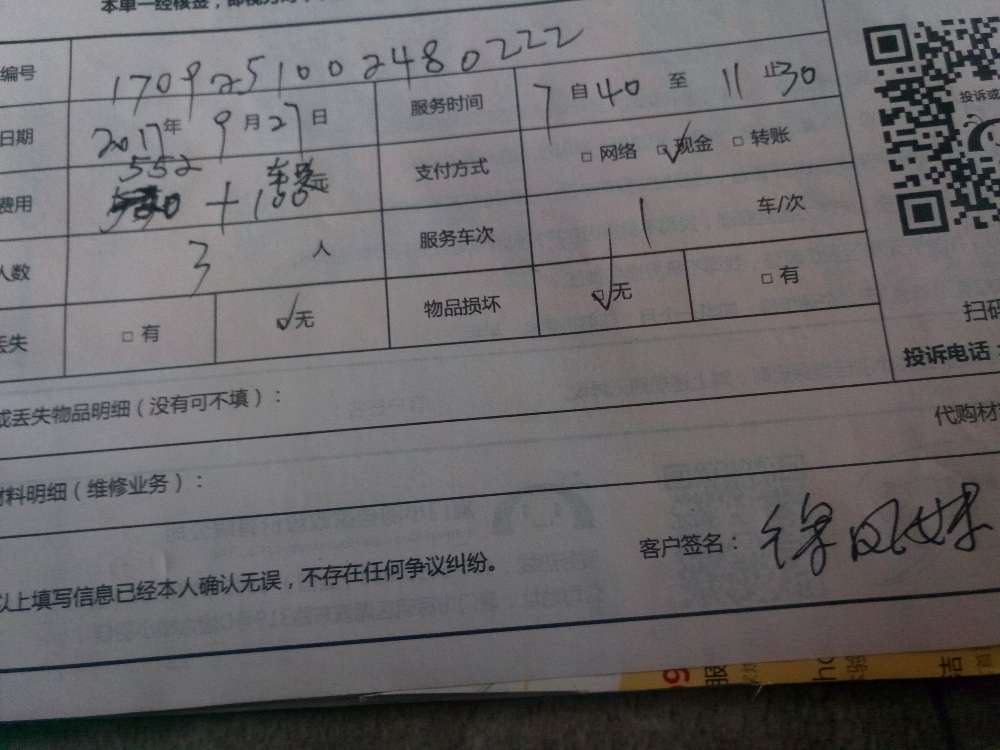 本单一经核签，即视为
编号 1709251002480222 服务时间 7自40 至 11止30
日期 2017年9月27日 支付方式 □网络 ☑现金 □转账
费用 552 + 100 元 服务车次 1 车/次
人数 3 人 物品损坏 ☑无 □有
丢失 □有 ☑无
投诉或
扫码
投诉电话：
或丢失物品明细（没有可不填）：
代购材
材料明细（维修业务）：
客户签名：徐凤妹
以上填写信息已经本人确认无误，不存在任何争议纠纷。